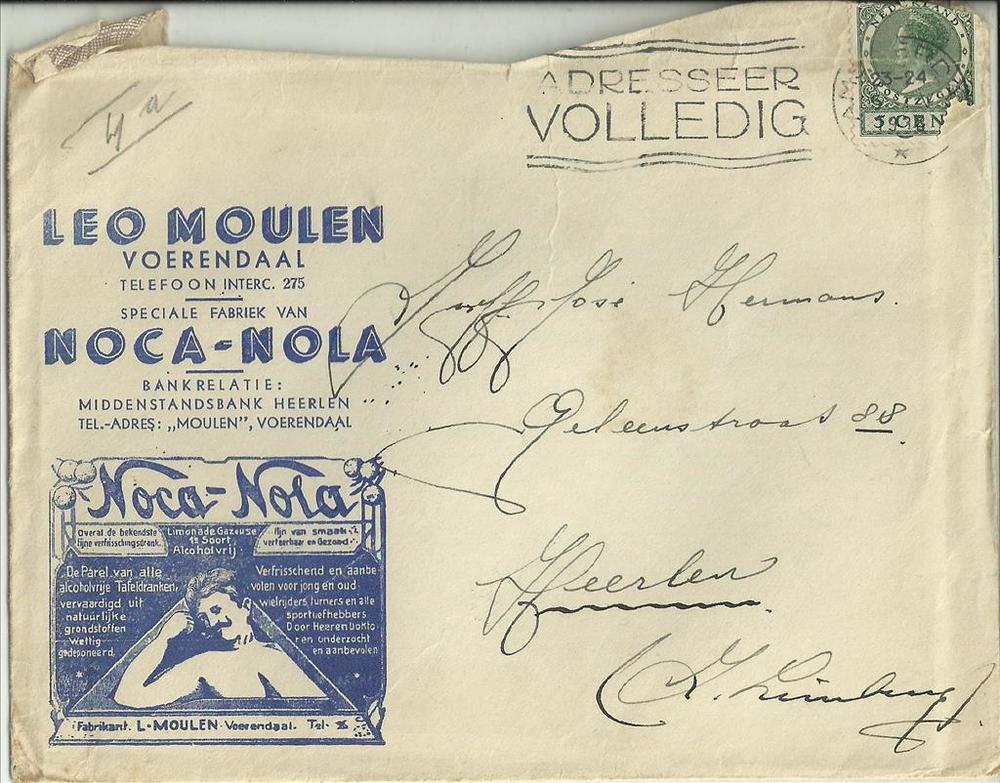 4a
ADRESSEER
VOLLEDIG
NEDERLAND
POSTZEGEL
5 CEN
13-24
LEO MOULEN
VOERENDAAL
TELEFOON INTERC. 275
SPECIALE FABRIEK VAN
NOCA-NOLA
BANKRELATIE:
MIDDENSTANDSBANK HEERLEN
TEL.-ADRES: „MOULEN”, VOERENDAAL
Noca-Nola
Overal de bekendste
fijne verfrisschingsdrank.
Limonade Gazeuse
1e Soort
Alcoholvrij
Fijn van smaak
verteerbaar en Gezond
De Parel van alle
alcoholvrije Tafeldranken,
vervaardigd uit
natuurlijke
grondstoffen
Wettig
gedeponeerd
Verfrisschend en aanbe
volen voor jong en oud
wielrijders, turners en alle
sportliefhebbers
Door Heeren Dokto
ren onderzocht
en aanbevolen
Fabrikant. L-MOULEN Voerendaal. Tel.
José Hermans.
Geleenstraat 88.
Heerlen.
(Z. Limburg)